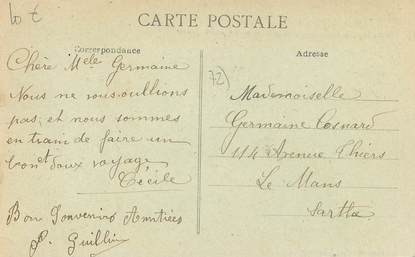 10 €
CARTE POSTALE
Correspondance
Chère Melle Germaine
Nous ne vous oublions
pas, et nous sommes
en train de faire un
bon et doux voyage
Cécile
Bon Souvenirs Amitiés
Guillin
Adresse
72)
Mademoiselle
Germaine Cosnard
114 Avenue Thiers
Le Mans
Sarthe